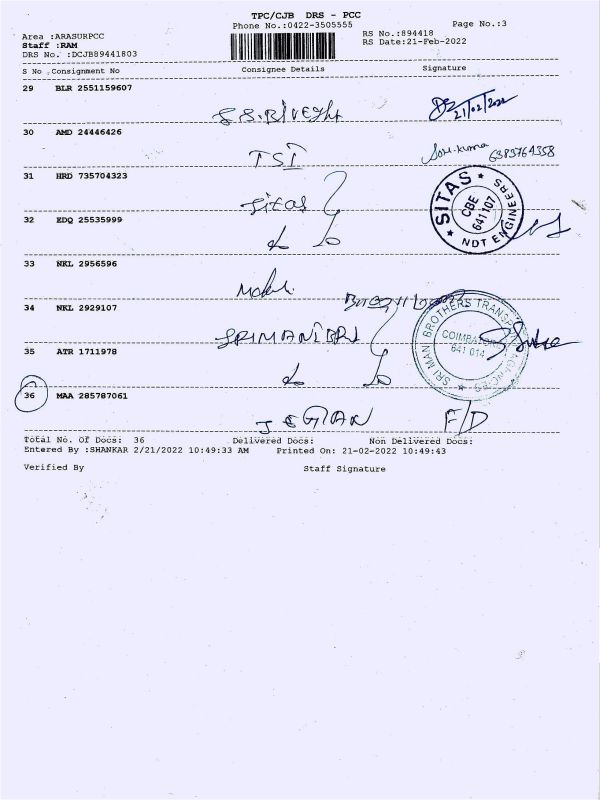 TPC/CJB DRS - PCC
Phone No.:0422-3505555
Page No.:3
Area :ARASURPCC
RS No.:894418
Staff :RAM
RS Date:21-Feb-2022
DRS No. :DCJB89441803
S No Consignment No Consignee Details Signature
29 BLR 2551159607
21/02/2022
30 AMD 24446426
TSI
6383764358
31 HRD 735704323
Sitas
SITAS
CBE
641 107
NDT ENGINEERS
32 EDQ 25535999
33 NKL 2956596
34 NKL 2929107
SRI MAN BROTHERS TRANSPORT
COIMBATORE
641 014
35 ATR 1711978
36 MAA 285787061
JEGAN F/D
Total No. Of Docs: 36 Delivered Docs: Non Delivered Docs:
Entered By :SHANKAR 2/21/2022 10:49:33 AM Printed On: 21-02-2022 10:49:43
Verified By Staff Signature